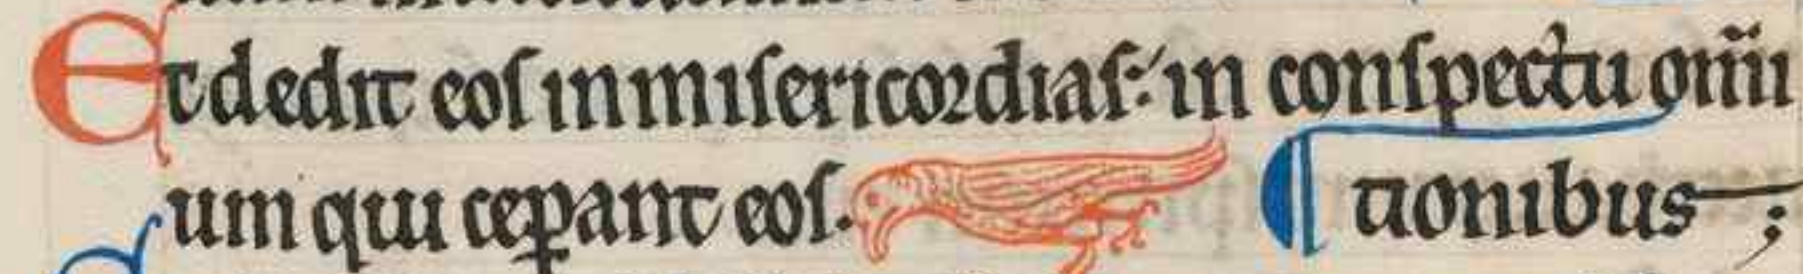 Et dedit eoſ in miſericordiaſ: in conſpectu om̅i
um qui cep̲ant eoſ. ¶ tionibus;